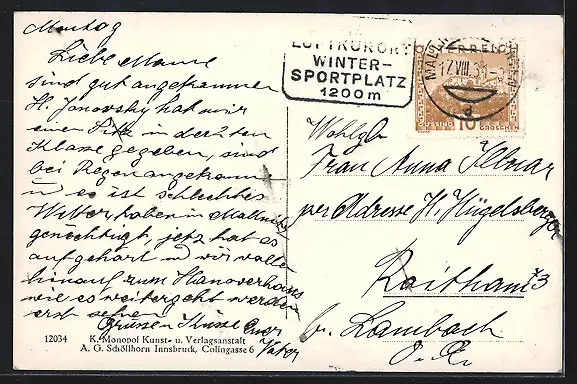 Montag
Liebe Mama
sind gut angekommen
H. Janovsky hat mir
einen Sitz in der 2ten
Klasse gegeben, sind
bei Regen angekommen
u es ist schlechtes
Wetter haben in Mallnitz
genächtigt, jetzt hat es
aufgehört u wir wollen
hinauf zum Hanoverhaus
wie es weitergeht werden
erst sehen
Grüssen Küsse Euer
Vater
12034 K. Monopol Kunst- u. Verlagsanstalt
A. G. Schöllhorn Innsbruck, Colingasse 6
LUFTKURORT
WINTER-
SPORTPLATZ
1200m
ÖSTERREICH
17.VIII.3
GÜSSING 10 GROSCHEN
Wohlgb
Frau Anna
per Adresse H. Hügelsberger
Roitham 73
b. Lambach
O. Oe.